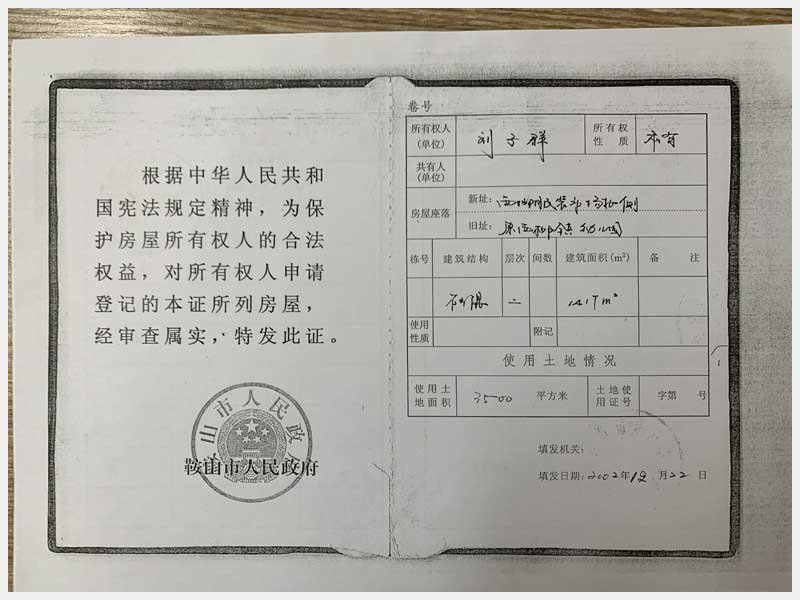 根据中华人民共和
国宪法规定精神，为保
护房屋所有权人的合法
权益，对所有权人申请
登记的本证所列房屋，
经审查属实，特发此证。
鞍山市人民政府
鞍山市人民政府
卷号
所有权人(单位) 刘子祥 所有权性质
共有人(单位)
房屋座落 新址：
旧址：
栋号 建筑结构 层次 间数 建筑面积(m²) 备注
二 m²
使用性质 附记
使用土地情况
使用土地面积 3500 平方米 土地使用证号 字第 号
填发机关：
填发日期：2002年12月22日